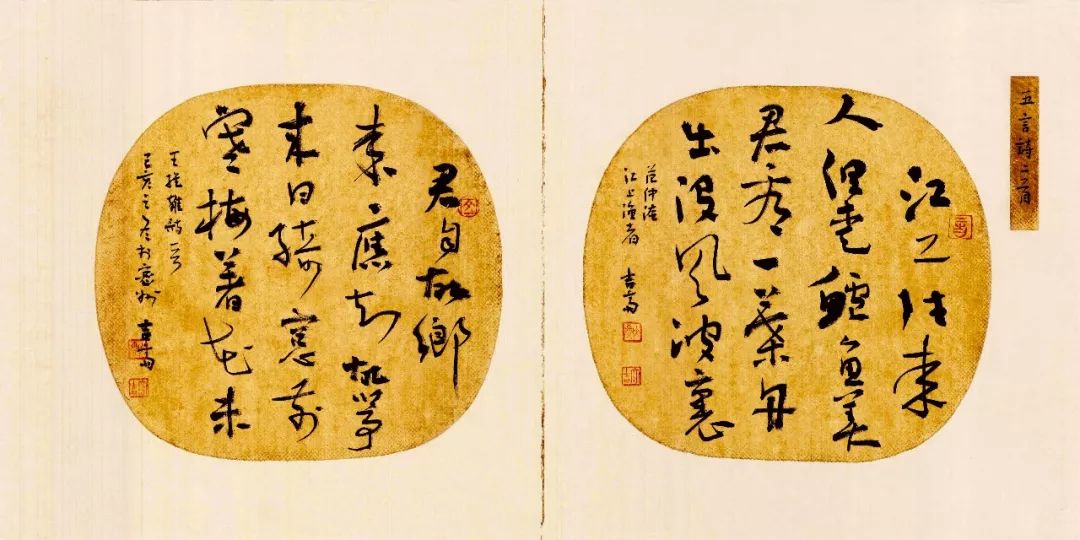 五言詩二首
江上往来
人但愛鱸魚美
君看一葉舟
出没風波裏
范仲淹
江上漁者
君自故鄉
来應知故鄉事
来日綺窓前
寒梅著花未
王維雜詩一首
己亥之冬於